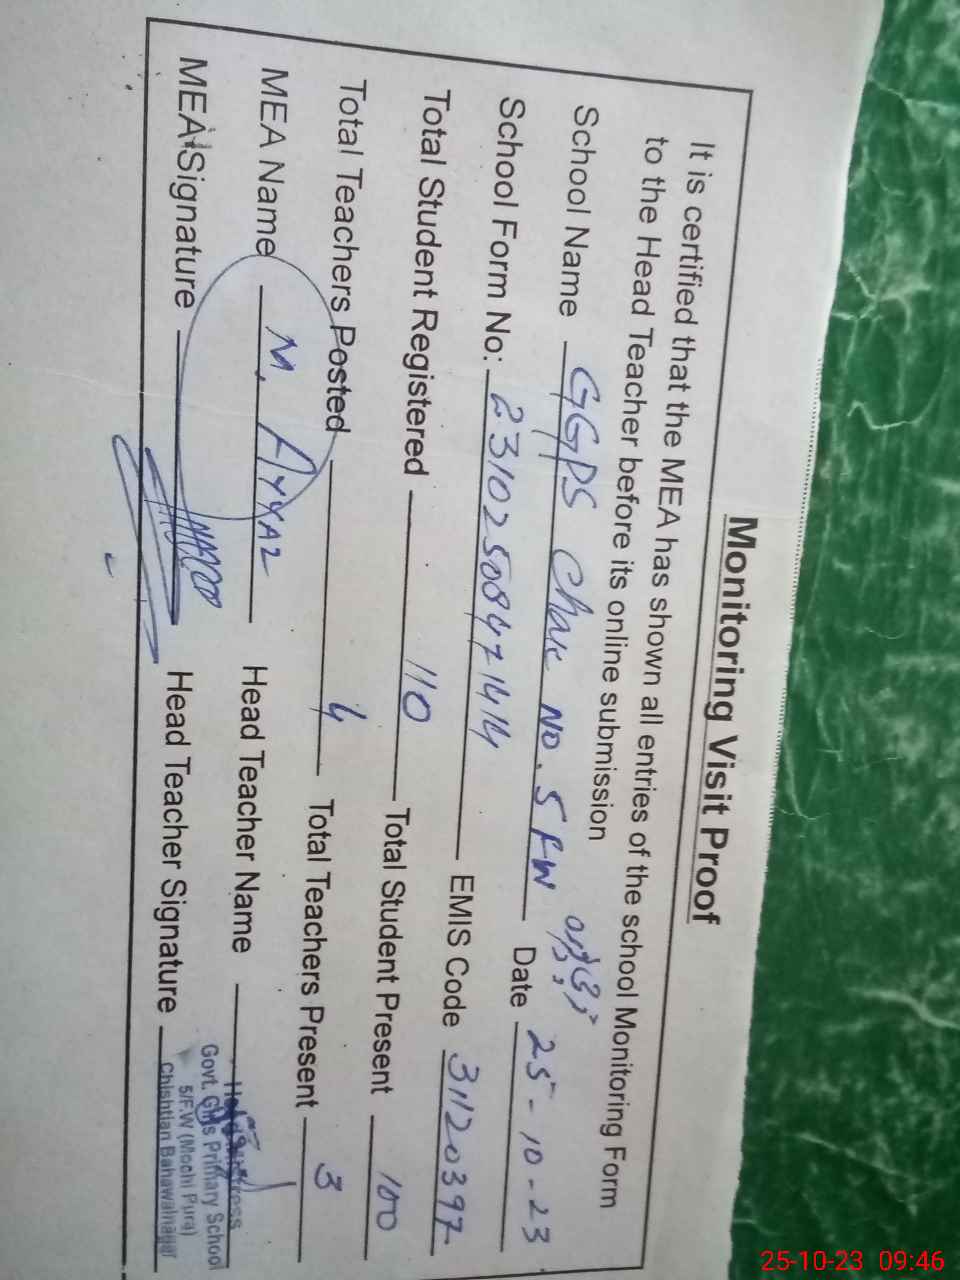 Monitoring Visit Proof
It is certified that the MEA has shown all entries of the school Monitoring Form
to the Head Teacher before its online submission
School Name GGPS Chak No. 5 FW Date 25-10-23
School Form No: 2310250847144 EMIS Code 31120397
Total Student Registered 110 Total Student Present 100
Total Teachers Posted 4 Total Teachers Present 3
MEA Name M. Ayyaz Head Teacher Name
MEA Signature Head Teacher Signature
Govt. Girls Primary School
5/F.W (Mochi Pura)
Chishtian Bahawalnagar
25-10-23 09:46